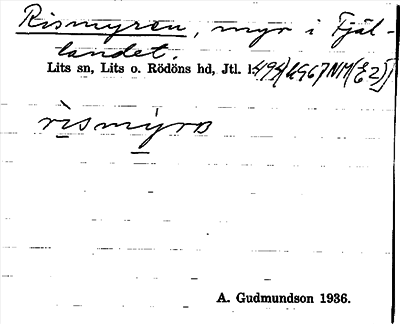 Rismyren, myr i Fjäl-
landet.
Lits sn, Lits o. Rödöns hd, Jtl.
rìsmýrɒ
A. Gudmundson 1936.